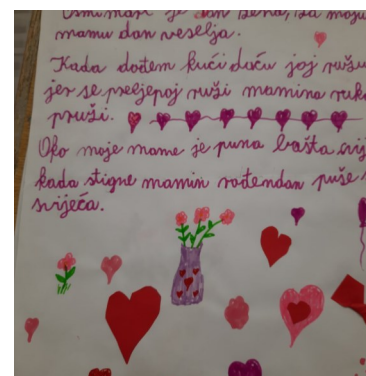 Osmi mart je dan žena, za moju
mamu dan veselja.
Kada dođem kući daću joj ružu
jer se preljepoj ruži mamina ruka
pruži.
Oko moje mame je puna bašta
kada stigne mamin rođendan puše
svijeća.